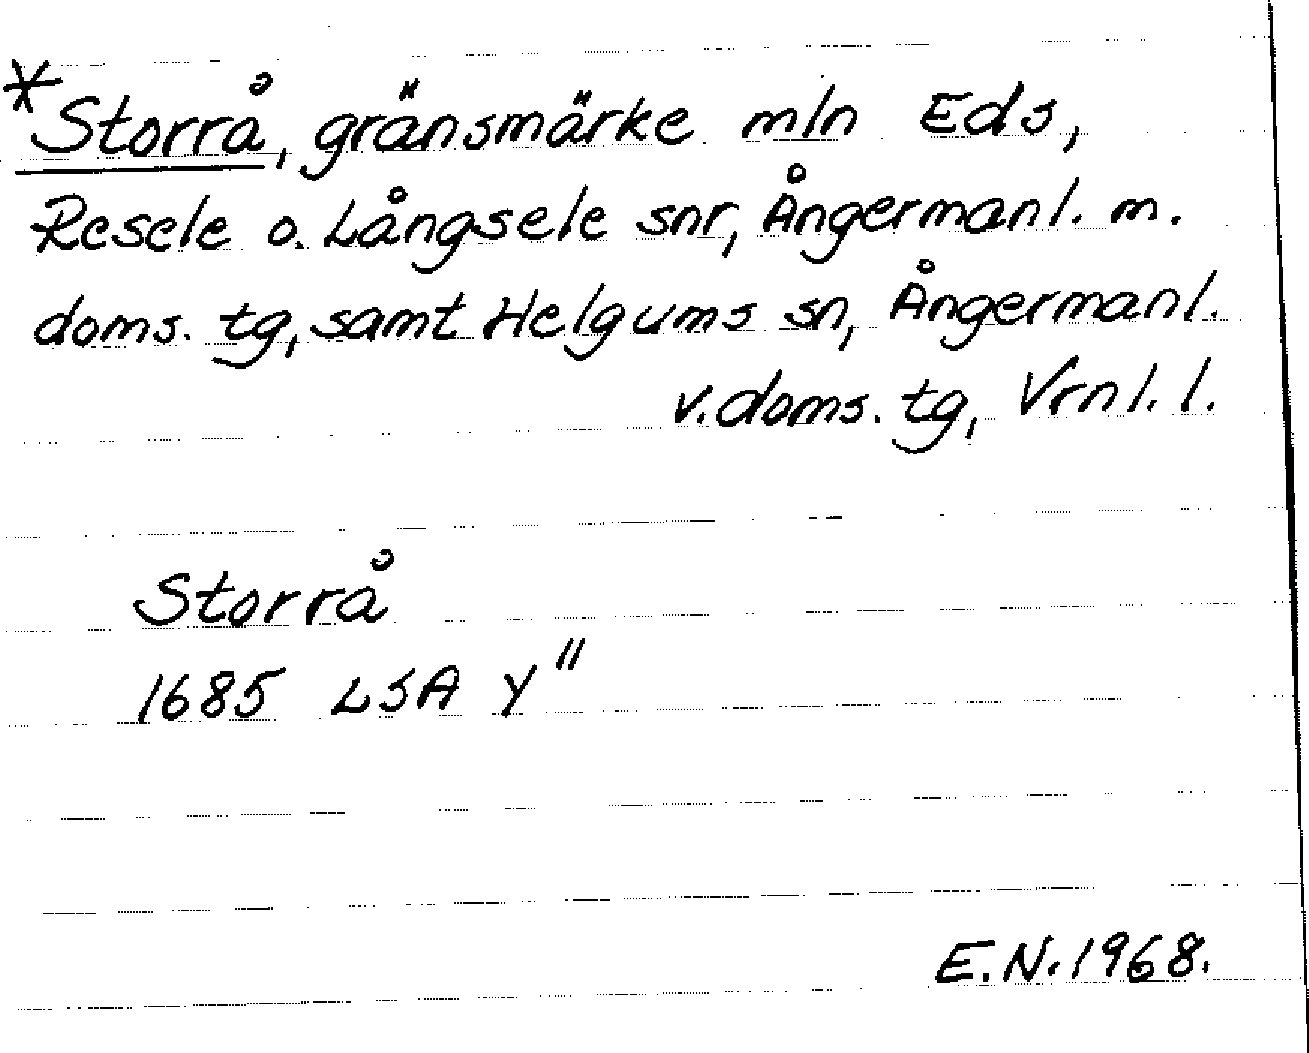 *Storrå, gränsmärke mln Eds,
Resele o. Långsele snr, Ångermanl. m.
doms. tg, samt Helgums sn, Ångermanl.
v. doms. tg, Vrnl. l.
Storrå
1685 LSA Y"
E.N. 1968.